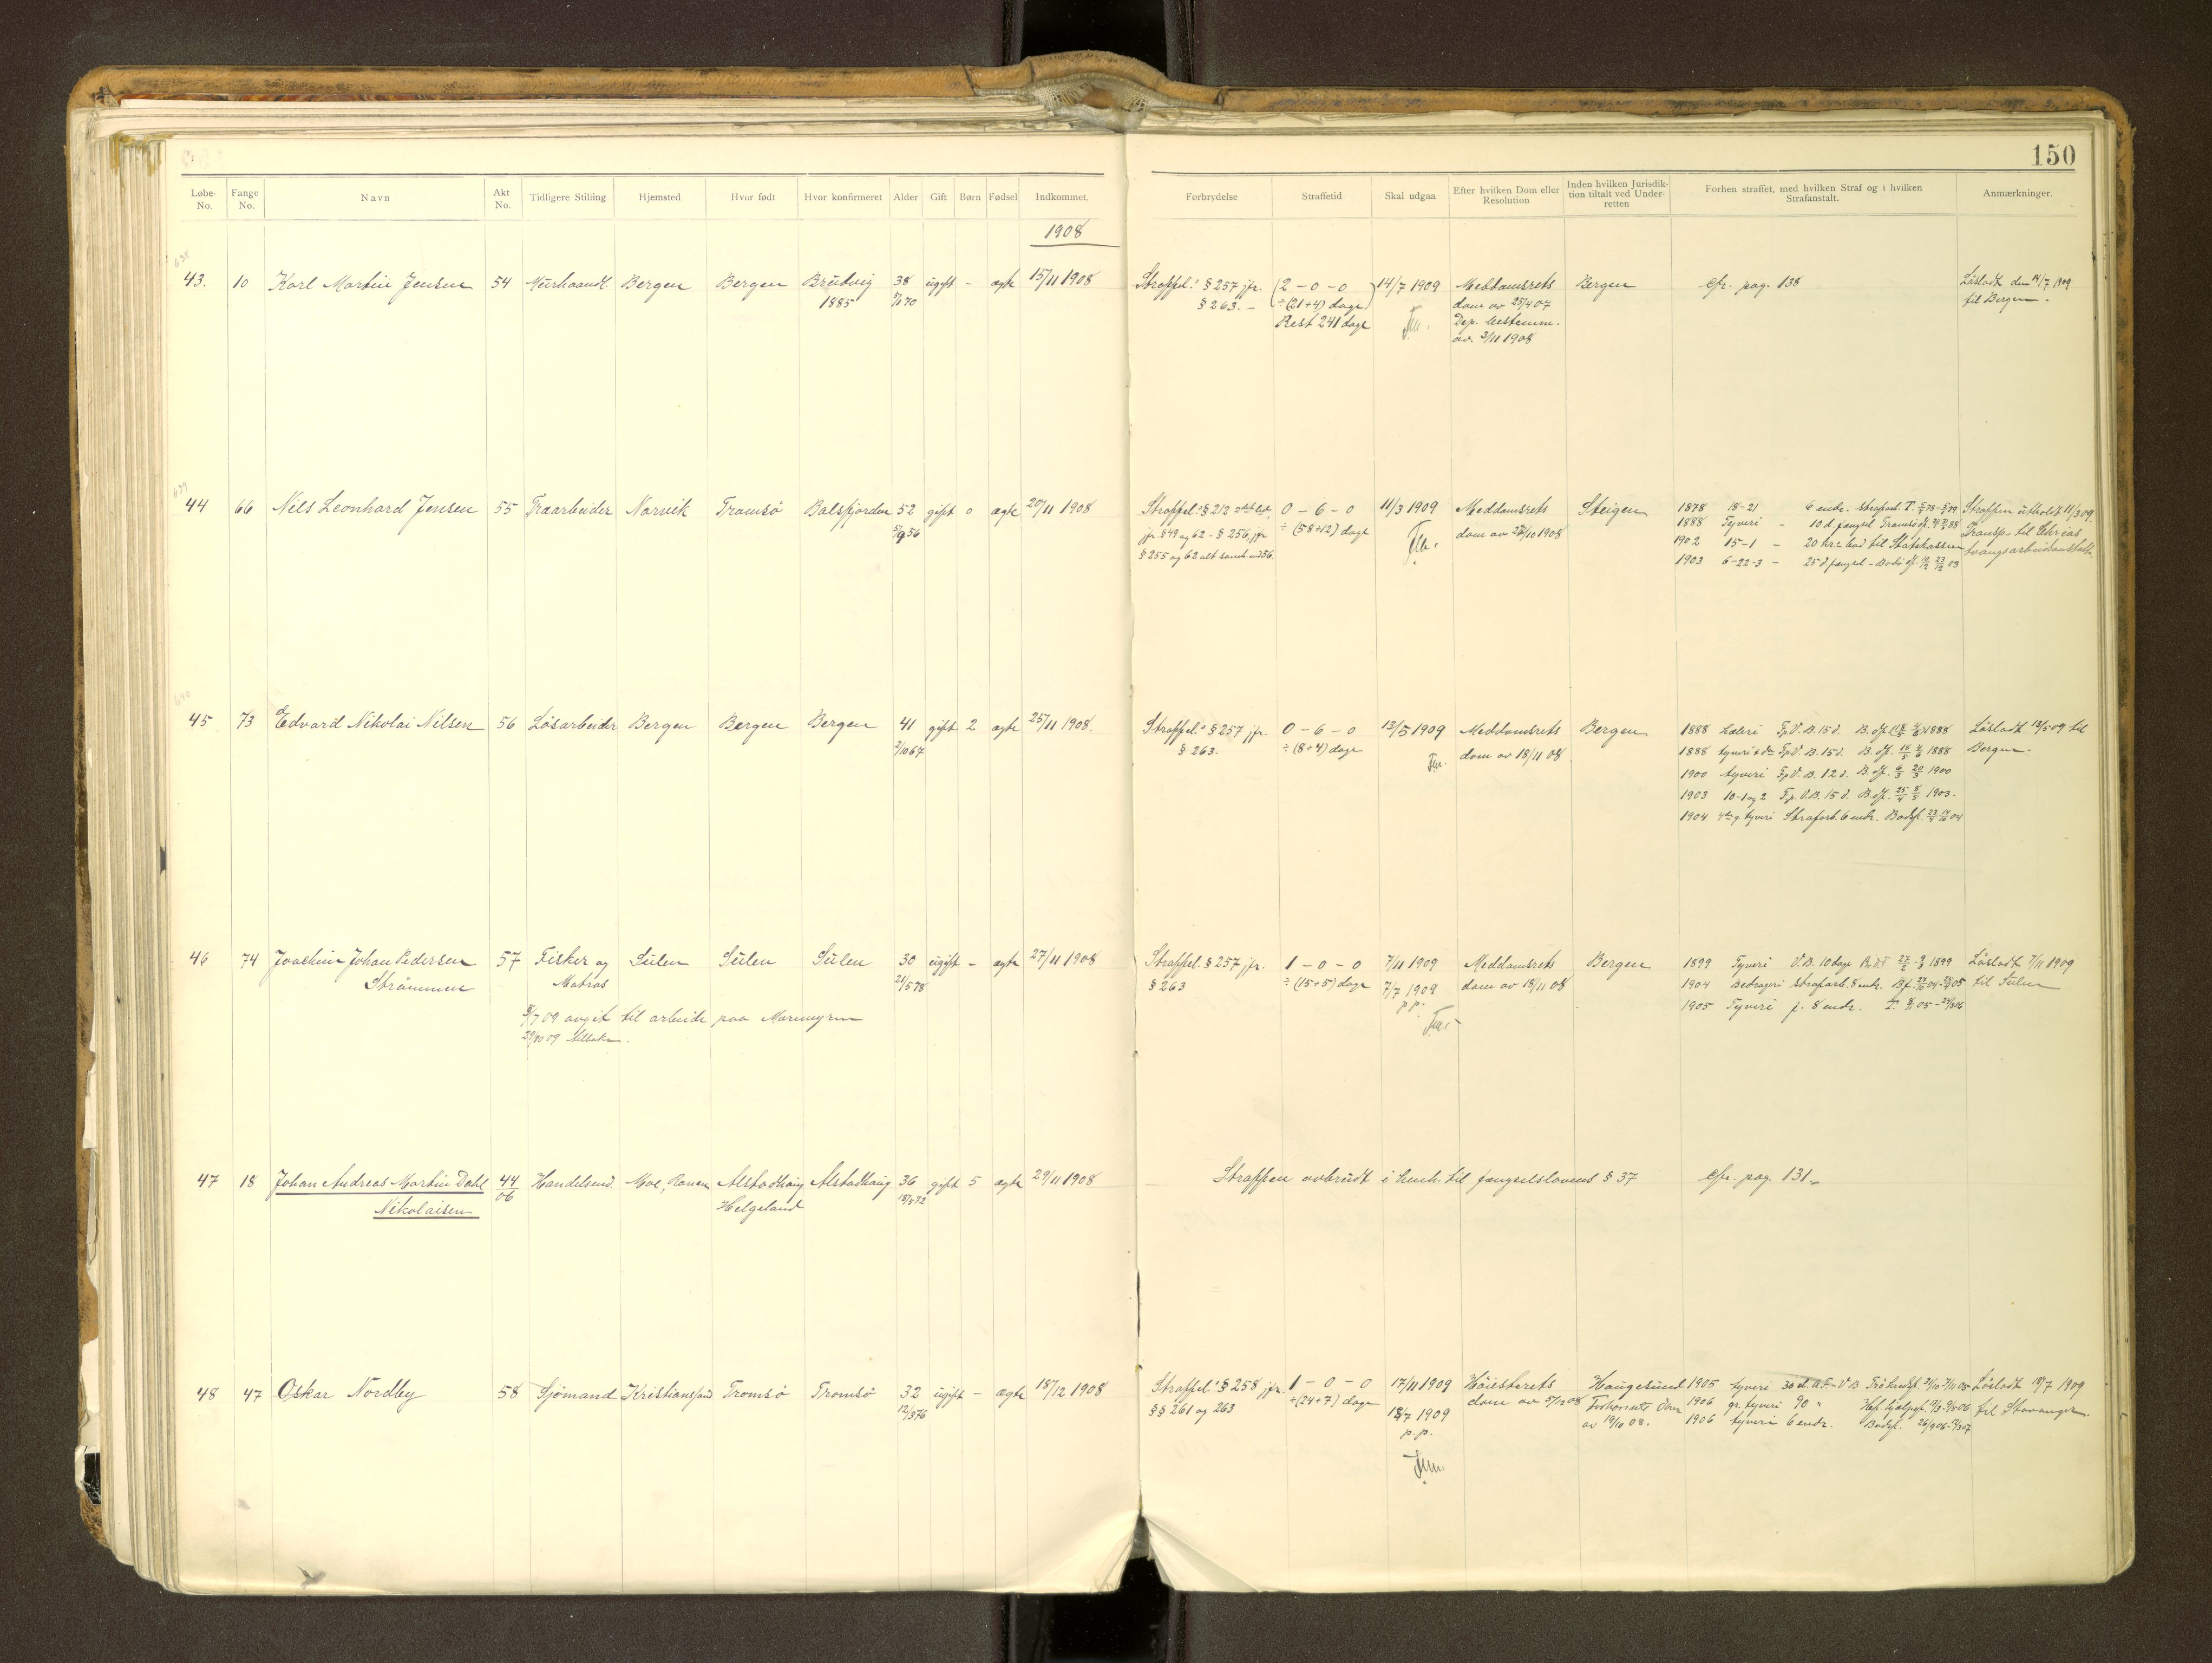 150
Løbe-No. Fange No. Navn Akt No. Tidligere Stilling Hjemsted Hvor født Hvor konfirmeret Alder Gift Børn Fødsel Indkommet.
Forbrydelse Straffetid Skal udgaa Efter hvilken Dom eller Resolution Inden hvilken Jurisdiktion tiltalt ved Underretten Forhen straffet, med hvilken Straf og i hvilken Strafanstalt. Anmærkninger.
1908
638
43. 10 Karl Martin Jensen 54 Murhaandl. Bergen Bergen Brudvig 38 ugift - ægte 15/11 1908 Straffel. § 257 jfr. (2 - 0 - 0 14/7 1909 Meddomsrets Bergen cfr. pag. 138 Løsladt den 14/7 1909
1885 § 263. - ÷ (21+4) dage) dom av 25/4 07 til Bergen.
Rest 241 dage Dep. bestemm.
av 3/11 1908
639
44 66 Nils Leonhard Jensen 55 Traarbeider Narvik Tromsø Balsfjorden 52 gift 0 ægte 20/11 1908 Straffel. § 212 0 - 6 - 0 11/3 1909 Meddomsrets Steigen 1878 18-21 6 mdr. strafarb. T. Straffen utholdt 11/3 09.
5/9 56 jfr. § 49 og 62 - § 256, jfr ÷ (58+12) dage dom av 1908 1888 Tyveri - 10 d. fængsel Tromsø Transp. til
§ 255 og 62 alt samt 1902 15-1 - 20 kr. bod til Statskassen tvangsarbeidsanstalt.
1903 6-22-3 - 25 d fængsel - Bodø
640
45 73 Edvard Nikolai Nilsen 56 Løsarbeider Bergen Bergen Bergen 41 gift 2 ægte 25/11 1908. Straffel. § 257 jfr. 0 - 6 - 0 13/5 1909 Meddomsrets Bergen 1888 hæleri Fp.V.B. 15 d. 1888 Løsladt 13/5 09 til
2/10 67 § 263. ÷ (8+4) dage dom av 18/11 08 1888 tyveri Fp V. B. 15 d. B. df. 1888 Bergen -
1900 tyveri Fp V. B. 12 d. B. df. 1900
1903 10-1 og 2 Fp. V.B. 15 d. B. df. 1903.
1904 4de g. tyveri Strafarb. 6 mdr. Bodsf. 04
46 74 Joachim Johan Pedersen 57 Fisker og Sulen Sulen Sulen 30 ugift - ægte 27/11 1908 Straffel. § 257 jfr. 1 - 0 - 0 7/11 1909 Meddomsrets Bergen 1899 Tyveri V. B. 10 dage 1899 Løsladt 7/11 1909
Strømmen Matros 21/5 78 § 263 ÷ (15+5) dage 7/7 1909 dom av 18/11 08 1904 Bedrageri strafarb. 8 mdr. til Sulen
p.p. 1905 Tyveri f. 8 mdr.
09 avgit til arbeide paa Maremyren
29/10 09 tilbake.
47 18 Johan Andreas Martin Dahl 44/06 Handelsmd. Moe, Ranen Alstadhaug Alstadhaug 36 gift 5 ægte 29/11 1908 Straffen avbrudt i henh. til fængselslovens § 37 cfr. pag. 131.
Nikolaisen Helgeland
48 47 Oskar Nordby 58 Sjømand Kristianssund Tromsø Tromsø 32 ugift - ægte 18/12 1908 Straffel. § 258 jfr. 1 - 0 - 0 17/11 1909 Høiesterets Haugesund 1905 tyveri 30 d. Løsladt 18/7 1909
12/3 76 § § 261 og 263 ÷ (24+7) dage 18/7 1909 dom av 5/12 08 Forhørsrets Dom 1906 gr. tyveri 90 " til Stavanger.
p.p. av 19/10 08. 1906 tyveri 6 mdr. Bodsf.